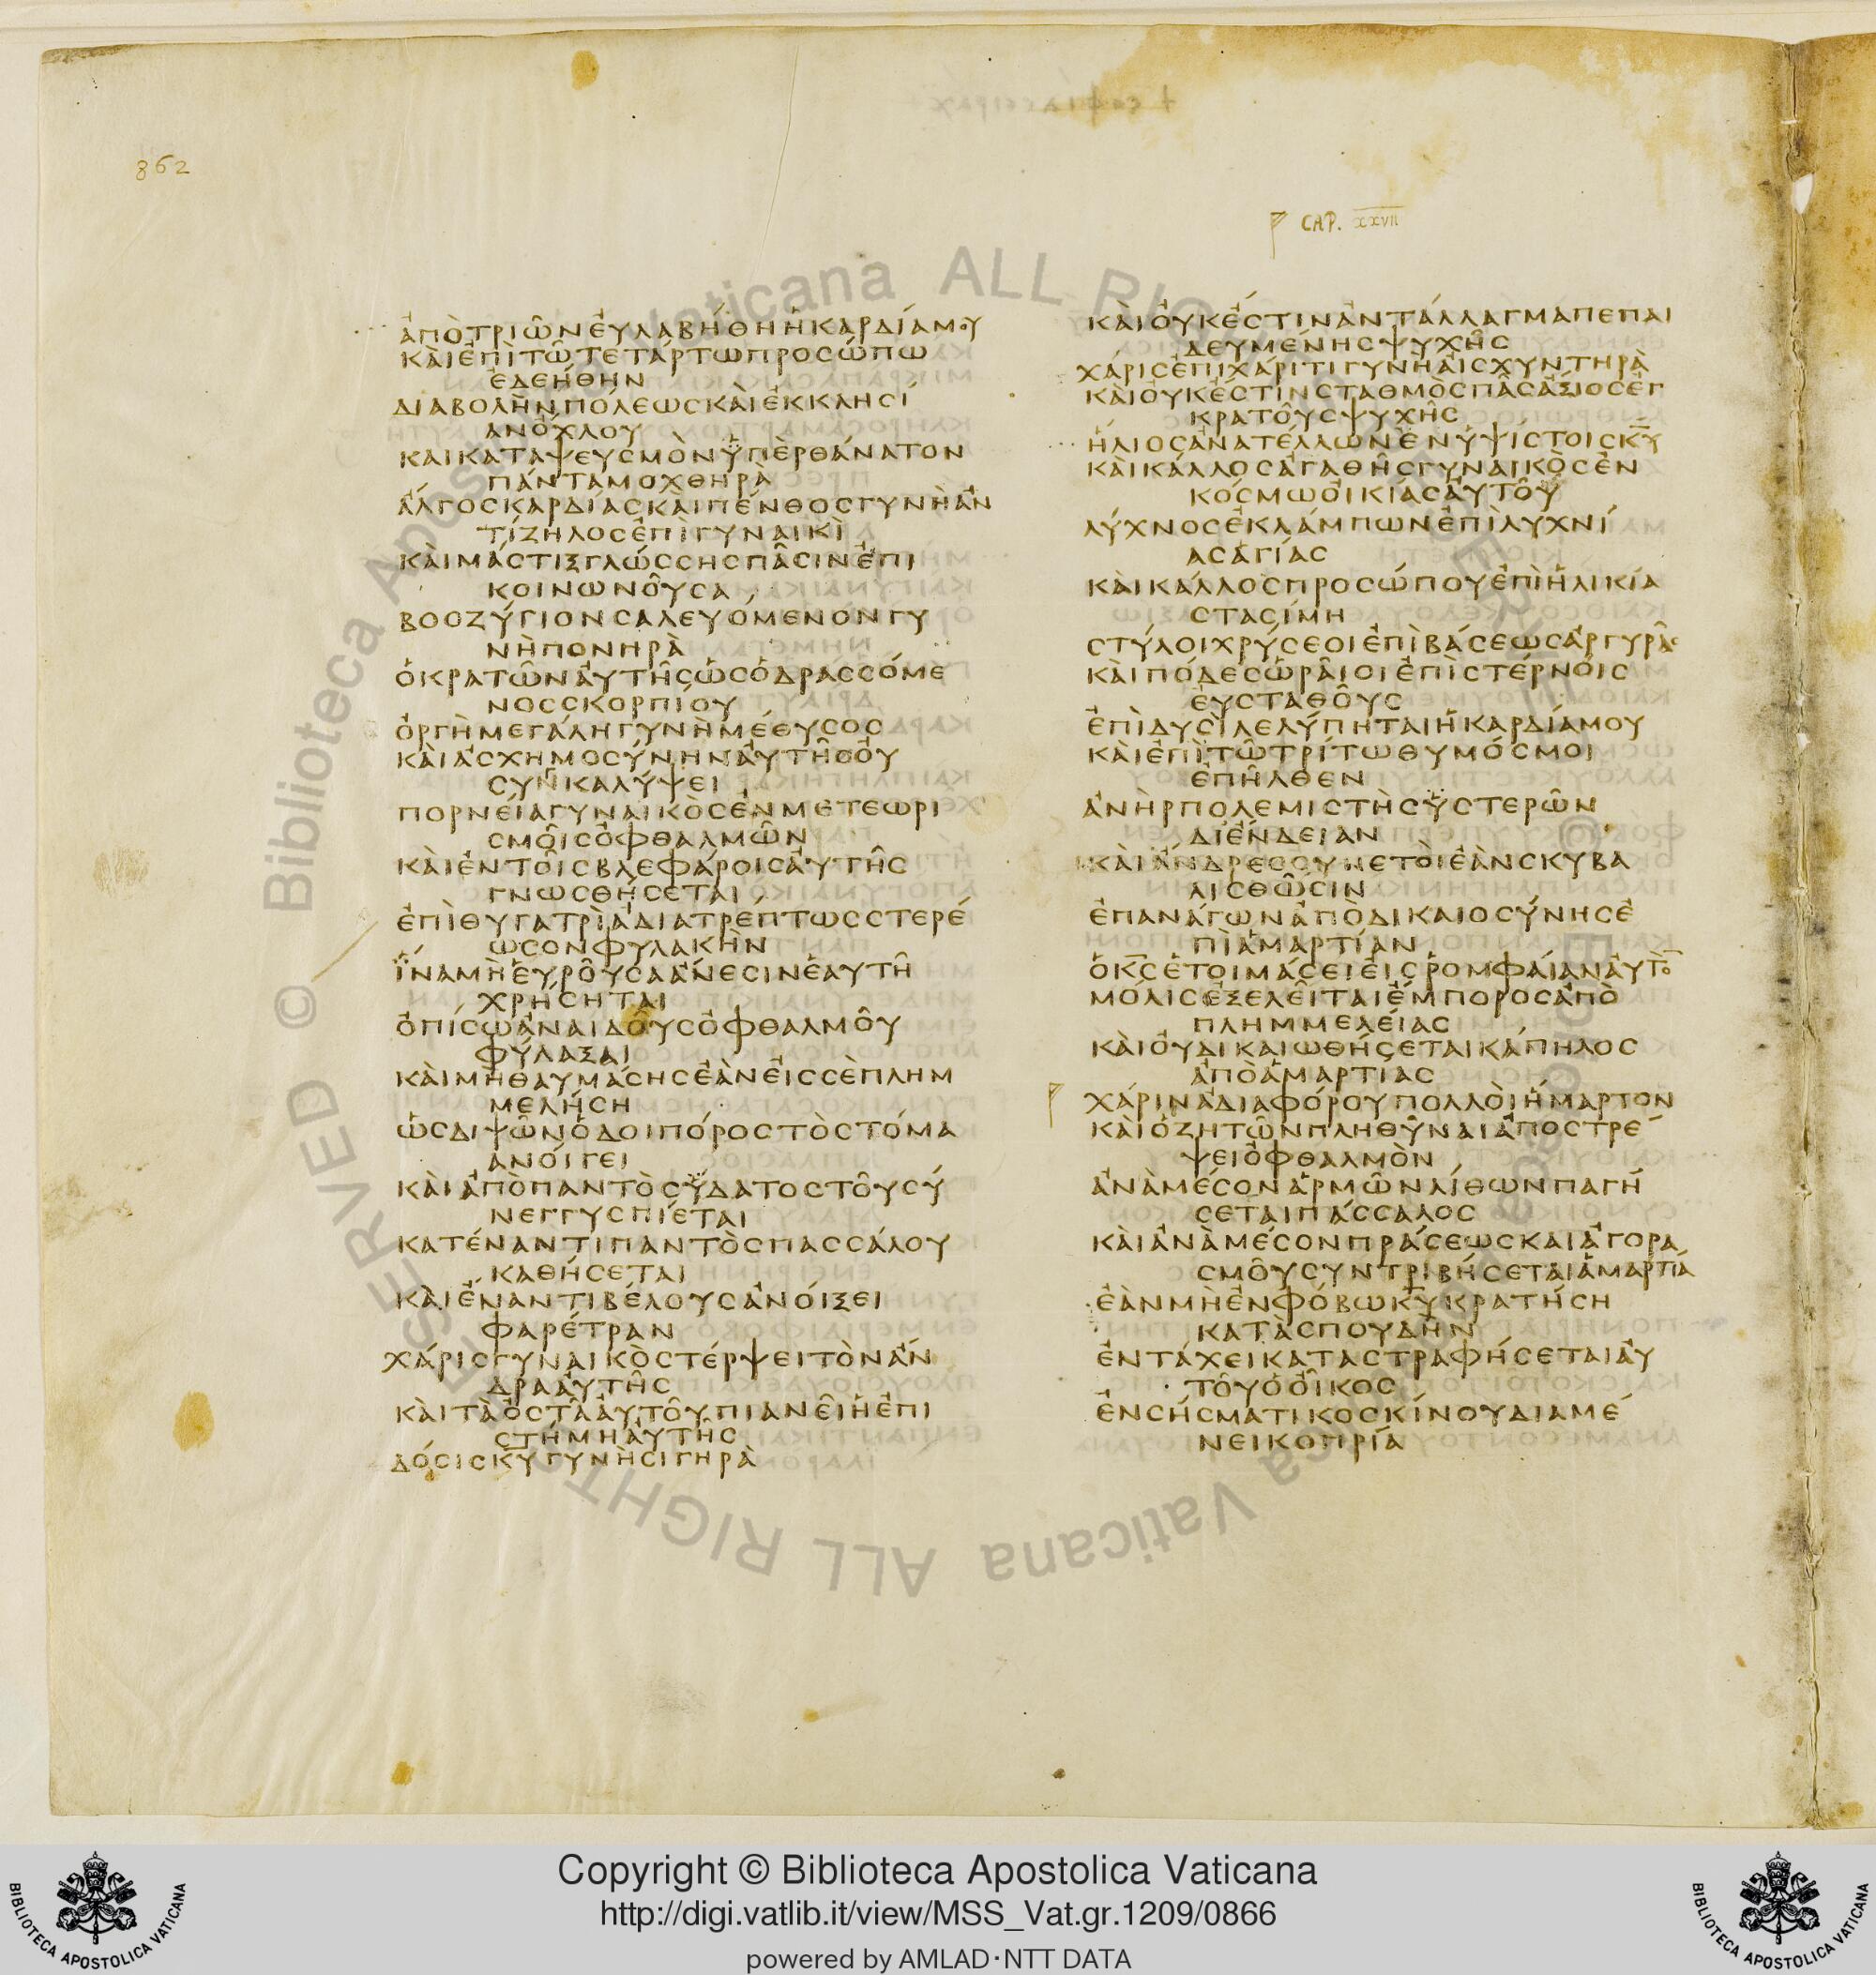 862
CAP. XXVII
ἀπὸτριῶνἐυλαβήθηἡκαρδίαμου
κὰιἐπὶτῶτετάρτωπροσώπω
ἐδεήθην
διαβολὴνπόλεωσκὰιἐκκλησί
ανὄχλου
καικαταψευσμὸνϋπὲρθάνατον
πάνταμοχθηρὰ
ἄλγοσκαρδίασκὰιπένθοσγυνὴἀν
τίζηλοσἐπὶγυναικὶ
κὰιμάστιξγλώσσησπᾶσινἐπι
κοινωνοῦσα
βοοζύγιονσαλευόμενονγυ
νὴπονηρὰ
ὁκρατῶνἀυτῆσὡσὁδρασσόμε
νοσσκορπίου
ὀργὴμεγάληγυνὴμέθυσος
κὰιἀσχημοσύνηνἀυτῆσὀυ
συνκαλύψει
πορνείαγυναικὸσἐνμετεωρι
σμοῖσὀφθαλμῶν
κὰιἐντοῖσβλεφάροισἀυτῆς
γνωσθήσεται
ἐπὶθυγατρὶἀδιατρέπτωσστερέ
ωσονφυλακὴν
ϊναμὴἑυροῦσαἄνεσινἑαυτῆ
χρήσηται
ὀπίσωἀναιδοῦσὀφθαλμοῦ
φύλαξαι
κὰιμὴθαυμάσησἐὰνἐισσὲπλημ
μελήση
ὡσδιψῶνὁδοιπόροστὸστόμα
ἀνοίγει
κὰιἀπὸπαντὸσϋδατοστοῦσύ
νεγγυσπίεται
κατέναντιπαντὸσπασσάλου
καθήσεται
κὰιἔναντιβέλουσἀνοίξει
φαρέτραν
χάρισγυναικὸστέρψειτὸνἄν
δραἀυτῆς
κὰιτὰὀστᾶἀυτοῦπιανεῖἡἐπι
στήμηἀυτῆς
δόσισκυγυνὴσιγηρὰ
κὰιὀυκἔστινἀντάλλαγμαπεπαι
δευμένησψυχῆς
χάρισἐπιχάριτιγυνὴἀισχυντηρὰ
κὰιὀυκἔστινσταθμὸσπᾶσἄξιοσἐγ
κρατοῦσψυχῆς
ἥλιοσἀνατέλλωνἐνὑψίστοισκυ
κὰικάλλοσἀγαθῆσγυναικὸσἐν
κόσμωὀικίασἀυτοῦ
λύχνοσἐκλάμπωνἐπὶλυχνί
ασἁγίας
κὰικάλλοσπροσώπουἐπὶἡλικία
στασίμη
στύλοιχρύσεοιἐπὶβάσεωσἀργυρᾶς
κὰιπόδεσὡρᾶιοιἐπὶστέρνοις
ἐυσταθοῦς
ἐπὶδυσὶλελύπηταιἡκαρδίαμου
κὰιἐπὶτῶτρίτωθυμόσμοι
ἐπῆλθεν
ἀνὴρπολεμιστὴσϋστερῶν
δἰἔνδειαν
κὰιἄνδρεσσυνετὸιἐὰνσκυβα
λισθῶσιν
ἐπανάγωνἀπὸδικαιοσύνησἐ
πὶἁμαρτίαν
ὁκσἑτοιμάσειἐισῥομφαίανἀυτὸ
μόλισἐξελεῖταιἔμποροσἀπὸ
πλημμελείας
κὰιὀυδικαιωθήσεταικάπηλος
ἀπὸἁμαρτιας
χάρινἀδιαφόρουπολλὸιἥμαρτον
κὰιὁζητῶνπληθῦναιἀποστρέ
ψειὀφθαλμὸν
ἀνὰμέσονἁρμῶνλίθωνπαγή
σεταιπάσσαλος
κὰιἀνὰμέσονπράσεωσκαιἀγορα
σμοῦσυντριβήσεταιἁμαρτία
ἐὰνμὴἐνφόβωκυκρατήση
κατὰσπουδὴν
ἐντάχεικαταστραφήσεταιἀυ
τοῦὁὀῖκος
ἐνσήσματικοσκίνουδιαμέ
νεικοπρία
Copyright © Biblioteca Apostolica Vaticana
http://digi.vatlib.it/view/MSS_Vat.gr.1209/0866
powered by AMLAD·NTT DATA
BIBLIOTECA APOSTOLICA VATICANA
BIBLIOTECA APOSTOLICA VATICANA